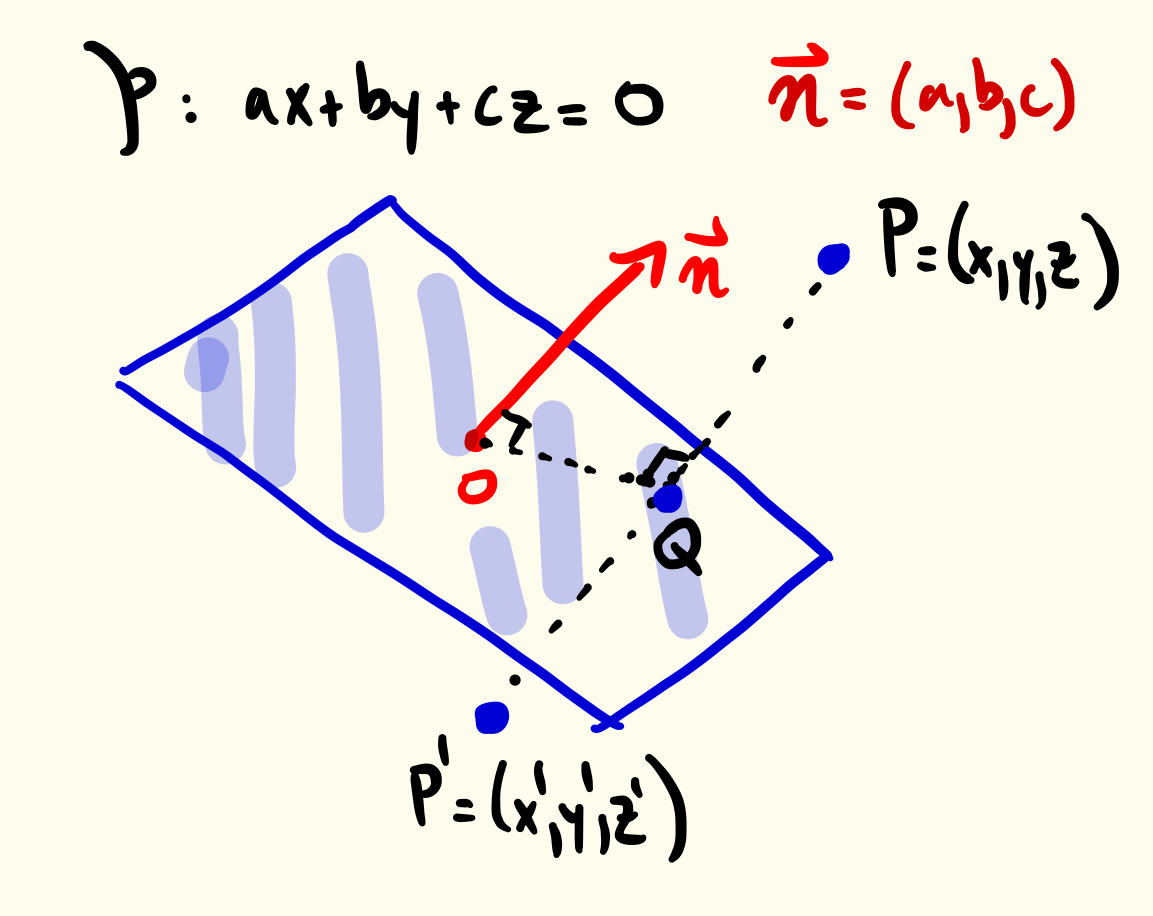 𝒫: ax+by+cz=0 n⃗=(a,b,c)
n⃗
P=(x,y,z)
O
Q
P'=(x',y',z')